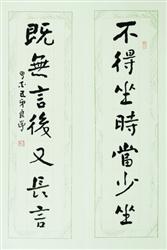 不得坐時當少坐
既無言後又長言